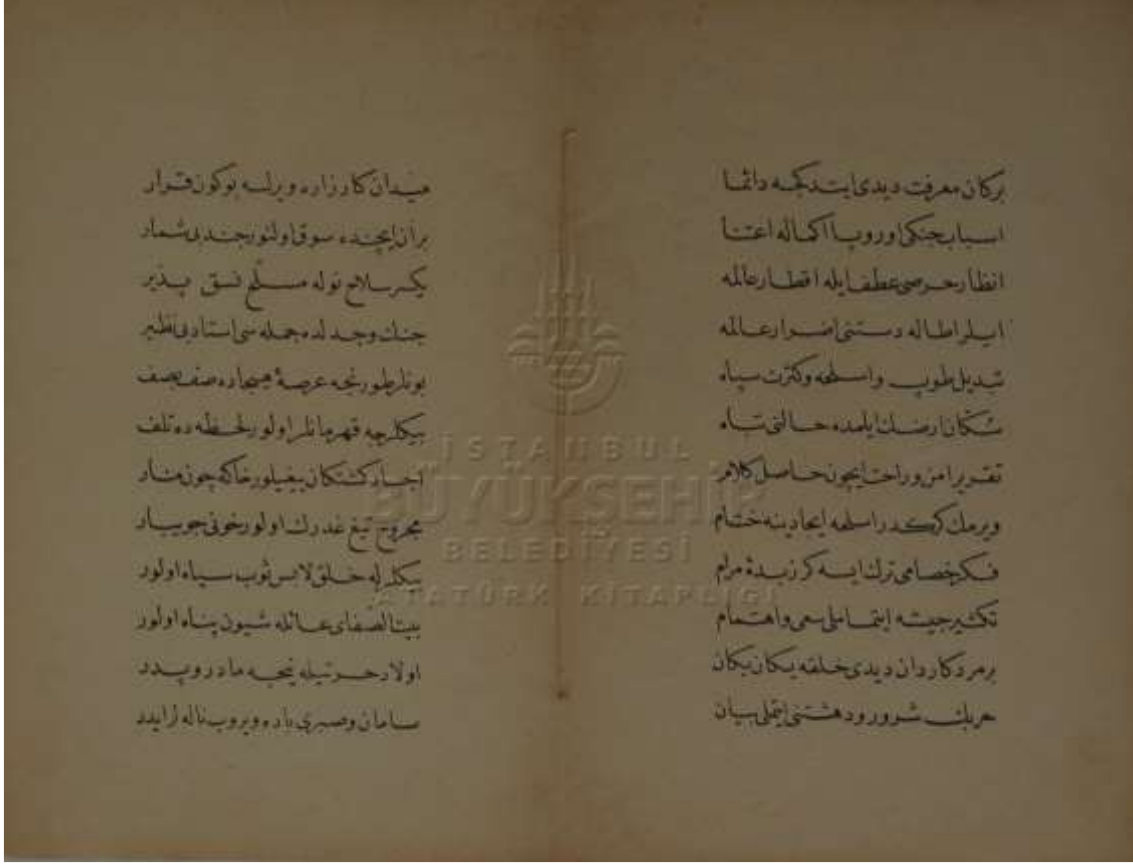 بركان معرفت ديدى ايتدكجه دائما
اسباب جنكى اوروپا اكماله اعتنا
انظار حرصى عطف ايله اقطار عالمه
ايلر اطاله دستنى اضرار عالمه
تبديل طوپ واسلحه وكثرت سپاه
سكان ارضك ايلمده حالنى تباه
تقرير امن وراحت ايچون حاصل كلام
ويرمك كركدر اسلحه ايجادينه ختام
فكر خصامى ترك ايسه كر زبدهٔ مرام
تكثير جيشه ايتمهلى سعى واهتمام
بر مرد كاردان ديدى خلقه يكان يكان
حربك شرور ودهشتنى ايتملى بيان
ميدان كارزاره ويرلسه بوكون قرار
بر آن ايچنده سوق اولنور جند بى شمار
يكسر سلاح نوله مسلح نسق پذير
جنك وجدلده جمله سى استاد بى نظير
بونلر طورنجه عرصهٔ هيجاده صف بصف
بيكلرجه قهرمانلر اولور لحظه ده تلف
اجساد كشتكان ييغيلور خاكه چون منار
مجروح تيغ غدرك اولور خونى جويبار
بيكلرله خلق لابس ثوب سياه اولور
بيت الصفاى عائله شيون پناه اولور
اولاد حسرتيله نيجه مادر وپدر
سامان وصبرى باده ويروب ناله لر ايدر
İSTANBUL
BÜYÜKŞEHİR
BELEDİYESİ
ATATÜRK KİTAPLIĞI